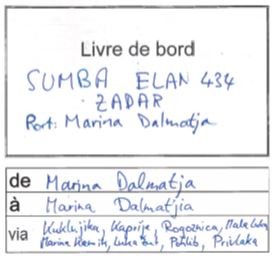 Livre de bord
SUMBA ELAN 434
ZADAR
Port: Marina Dalmatja
de Marina Dalmatja
à Marina Dalmatjia
via Kukljika, Kaprije, Rogoznica,
Marina Kremik, Privlaka